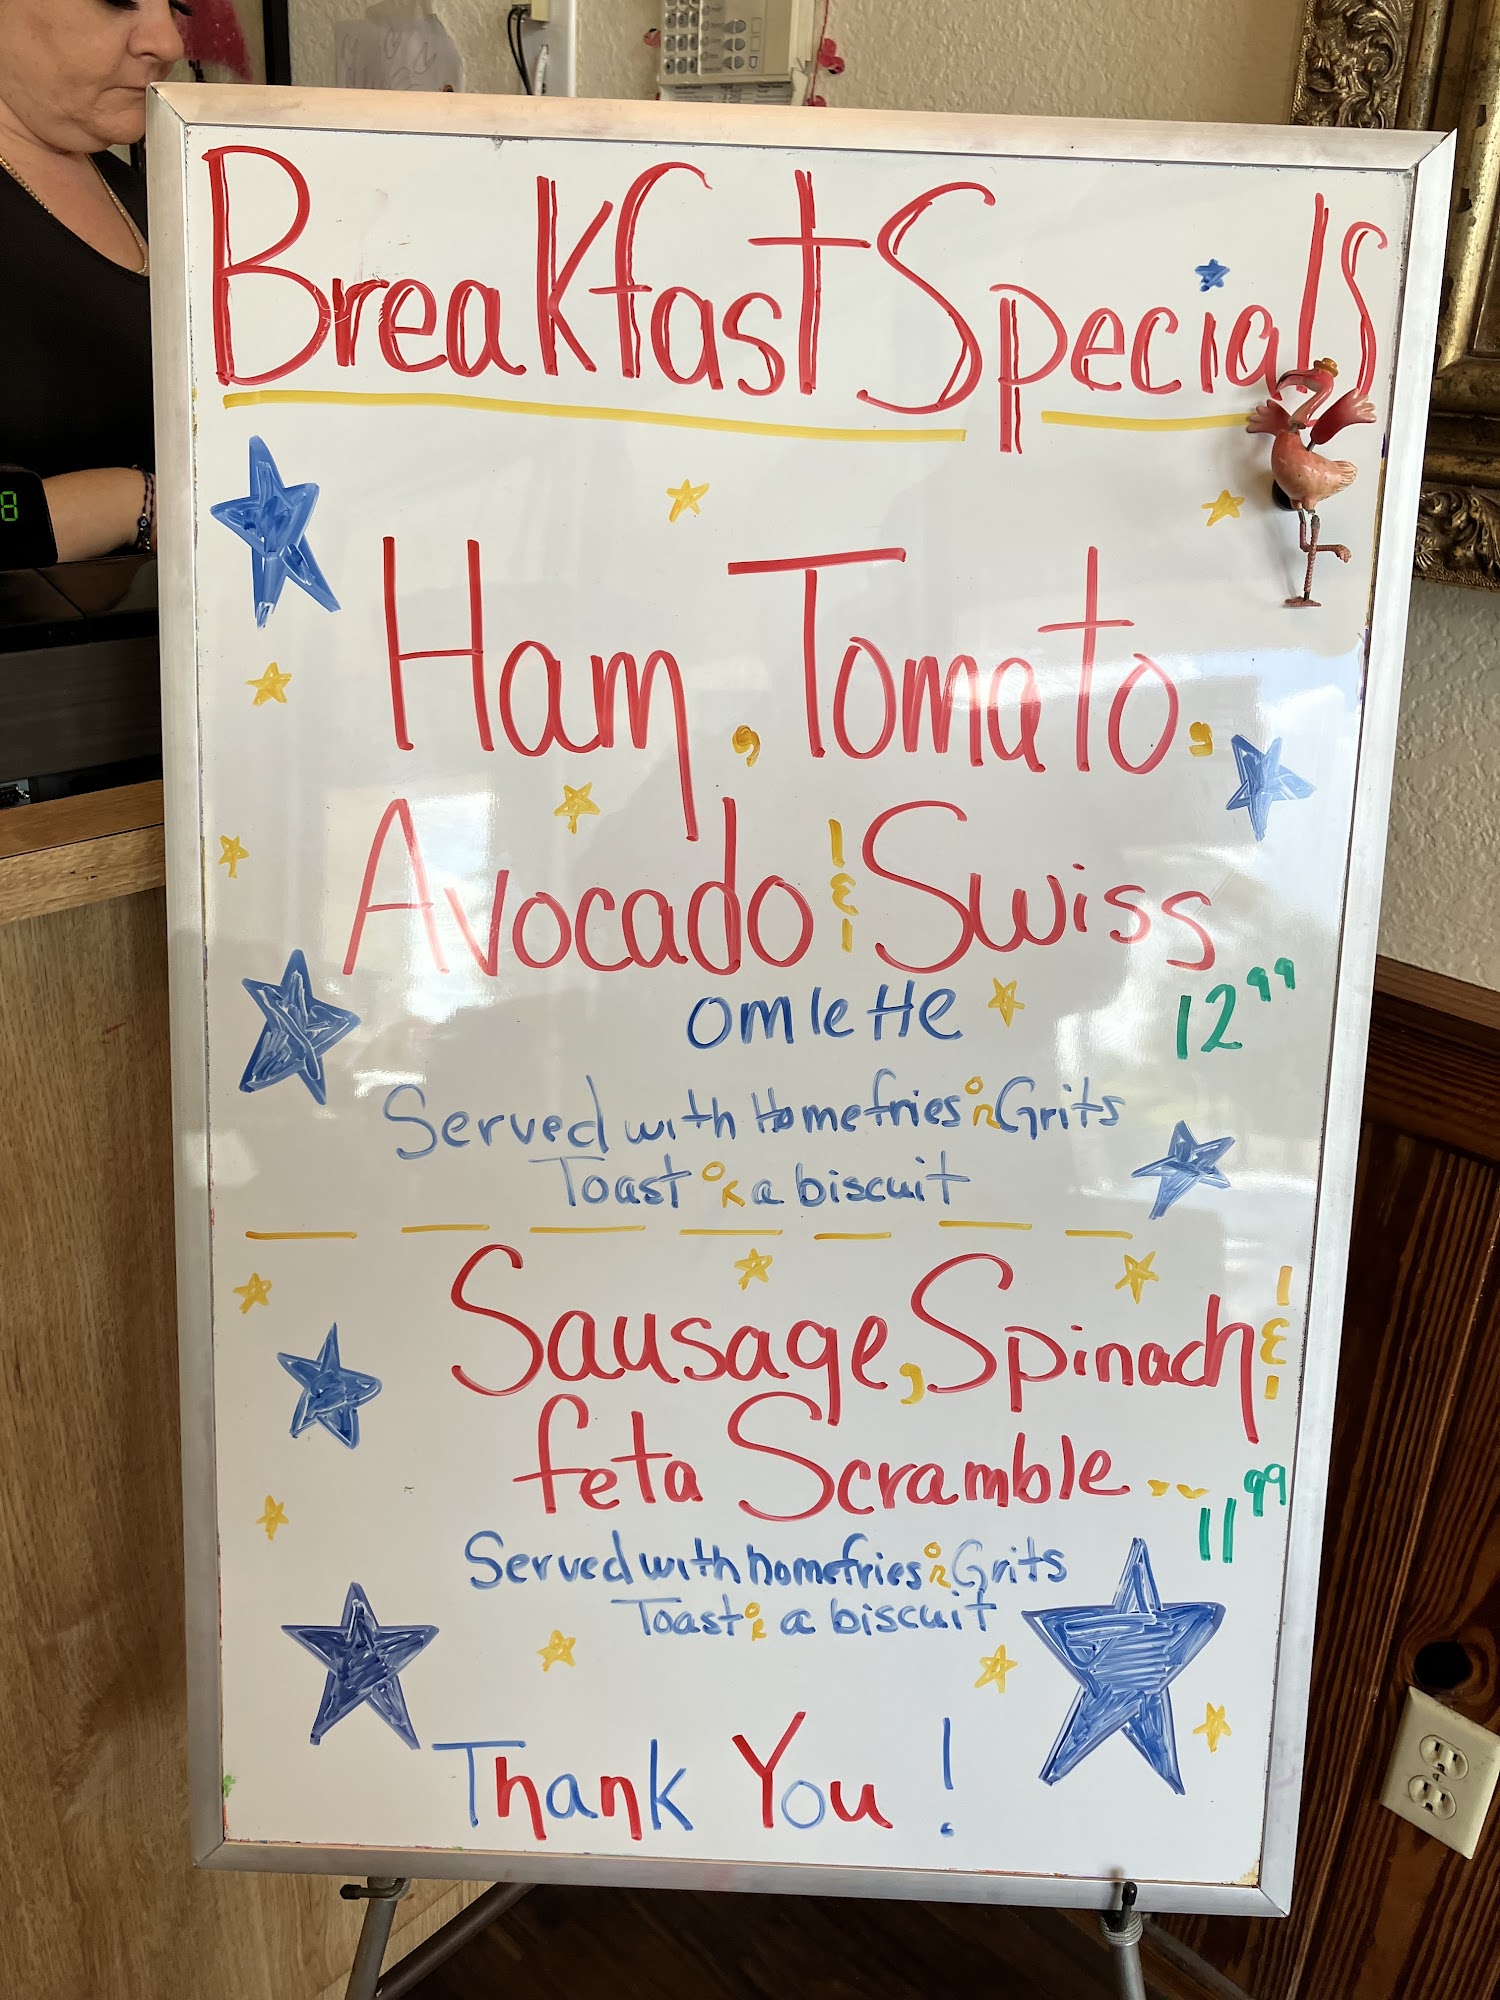 Breakfast Specials
Ham, Tomato,
Avocado & Swiss
omlette 12.99
Served with Homefries or Grits
Toast or a biscuit
Sausage, Spinach &
feta Scramble -- 11.99
Served with homefries or Grits
Toast or a biscuit
Thank You !
8